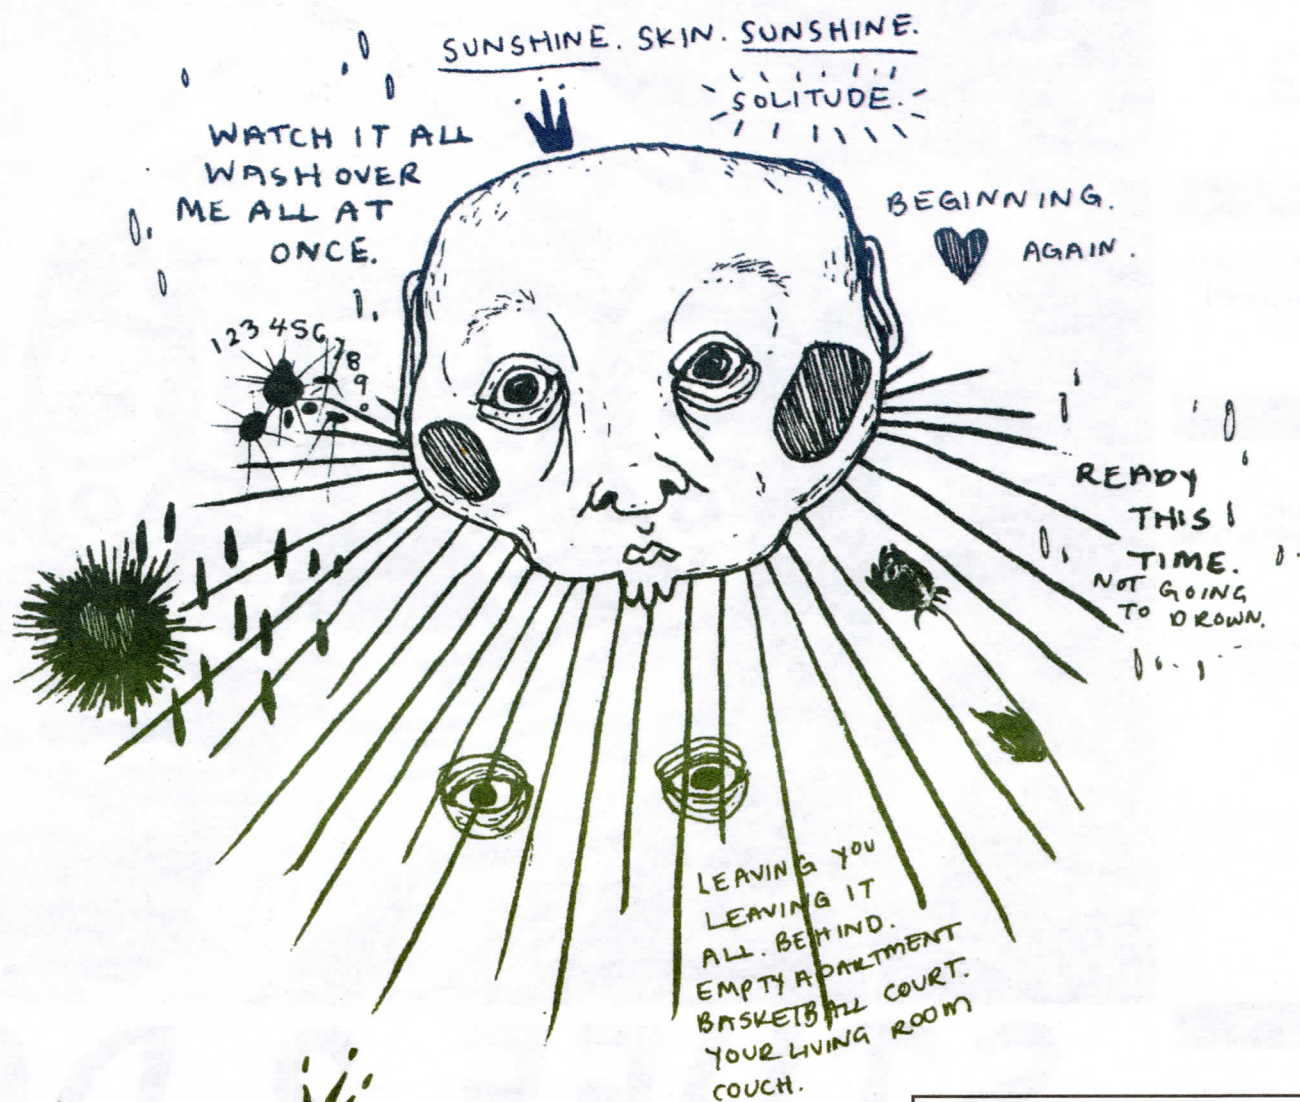 SUNSHINE. SKIN. SUNSHINE.
SOLITUDE.
WATCH IT ALL
WASH OVER
ME ALL AT
ONCE.
BEGINNING.
AGAIN.
1 2 3 4 5 6 7 8 9
READY
THIS
TIME.
NOT GOING
TO DROWN.
LEAVING YOU
LEAVING IT
ALL. BEHIND.
EMPTY APARTMENT
BASKETBALL COURT.
YOUR LIVING ROOM
COUCH.